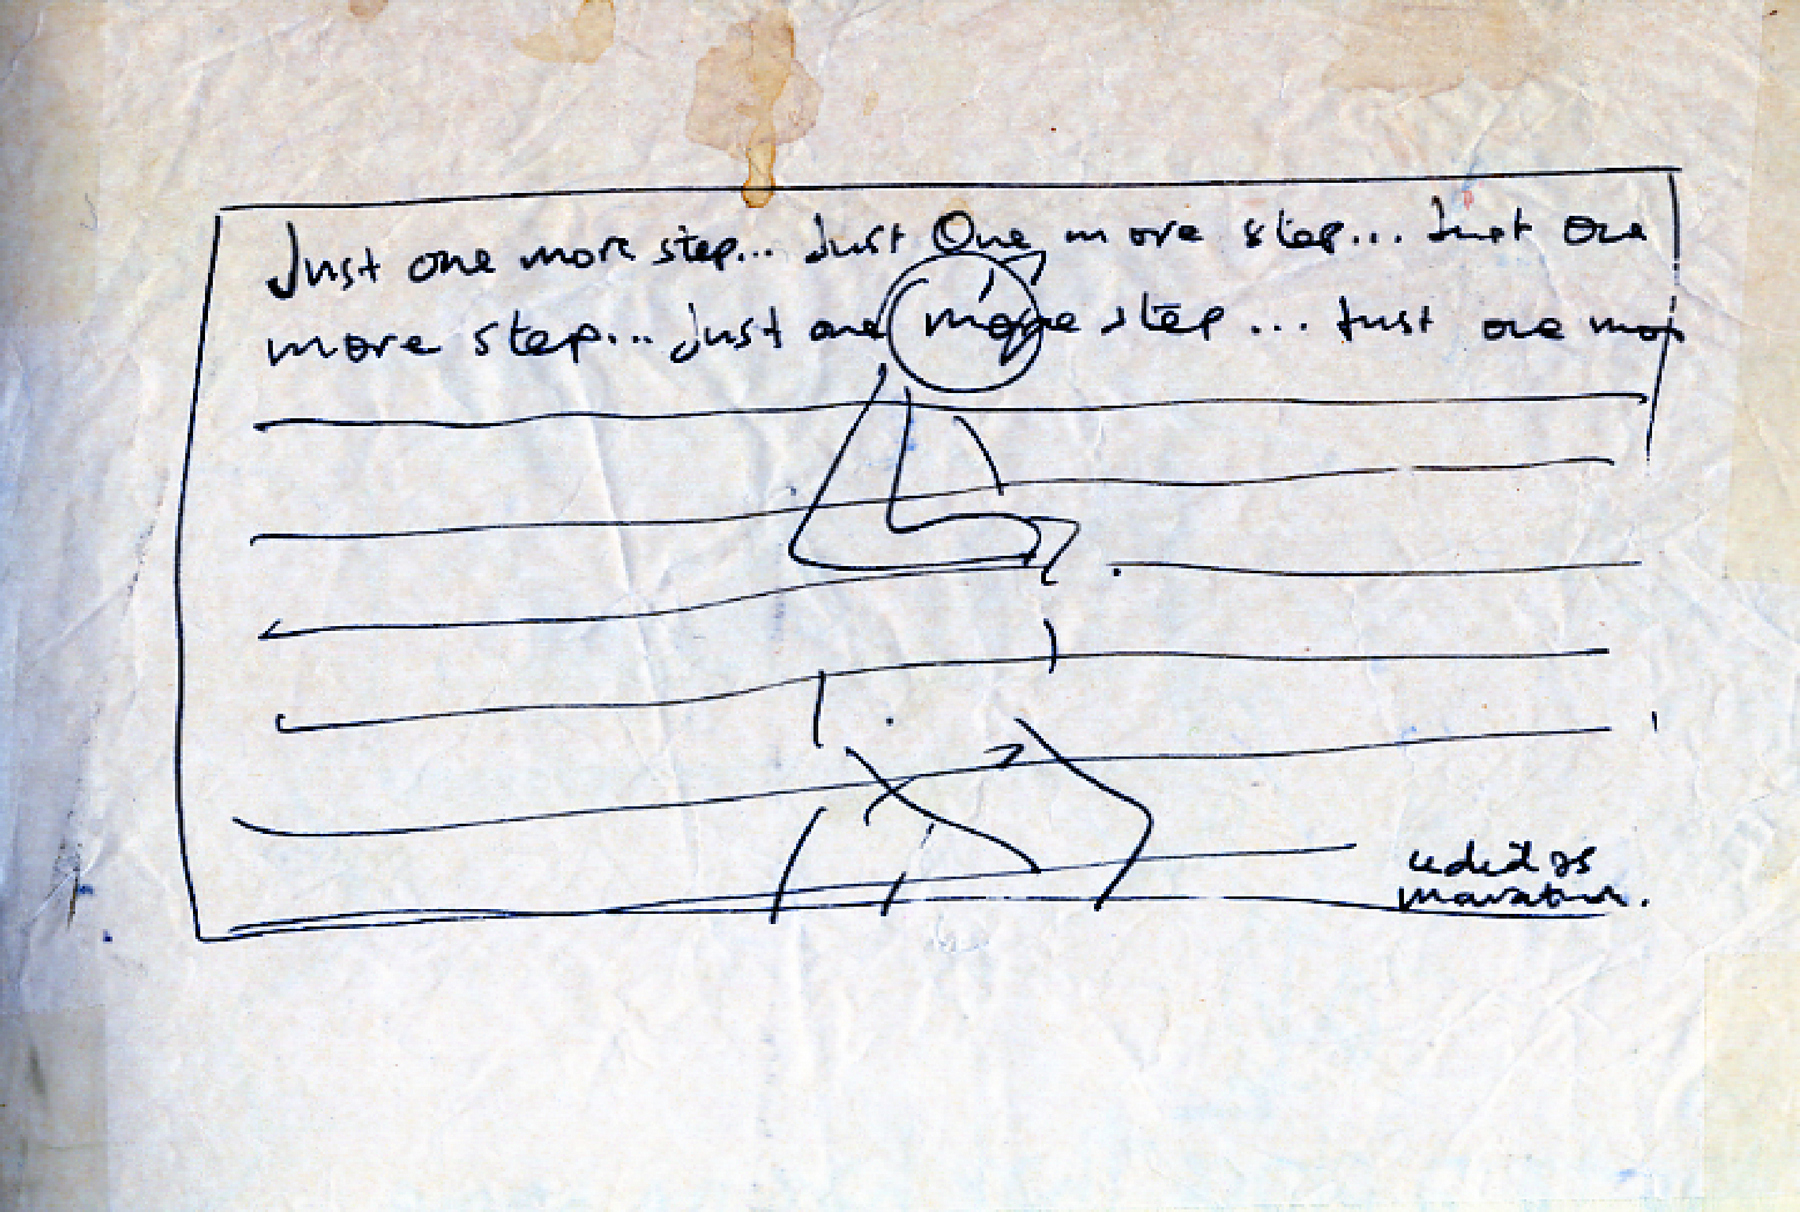 Just one more step... Just One more step... Just one
more step... Just one more step... Just one mor